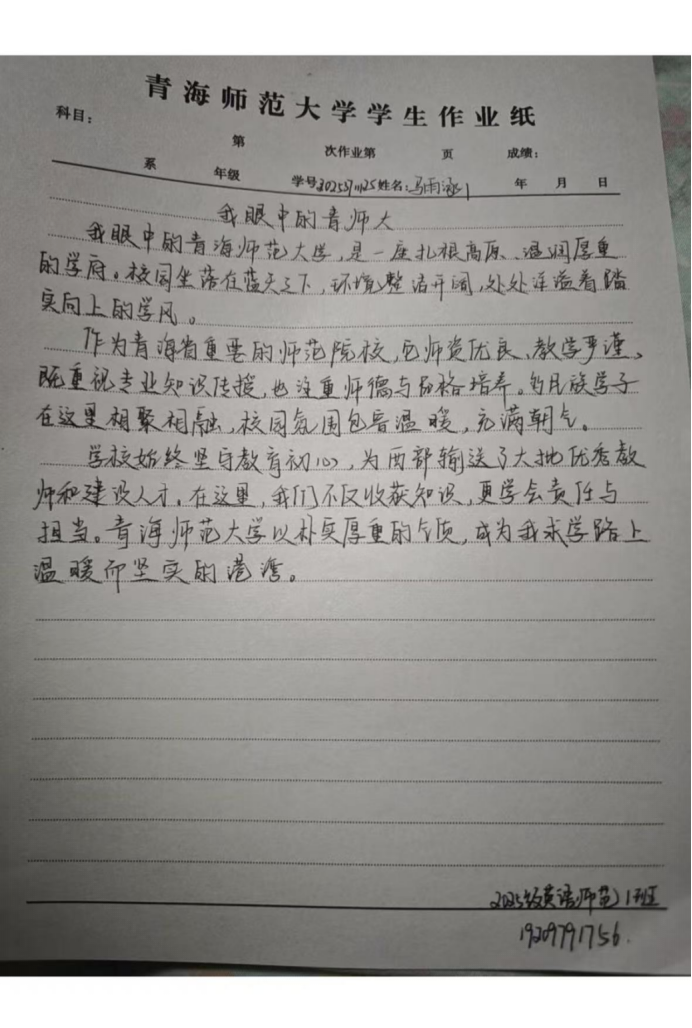 青海师范大学学生作业纸
科目：
第 次作业第 页 成绩：
系 年级 学号 姓名：马雨涵 年 月 日
我眼中的青师大
我眼中的青海师范大学，是一座扎根高原、温润厚重
的学府。校园坐落在蓝天之下，环境整洁开阔，处处洋溢着踏
实向上的学风。
作为青海省重要的师范院校，它师资优良、教学严谨，
既重视专业知识传授，也注重师德与品格培养。各民族学子
在这里相聚相融，校园氛围包容温暖，充满朝气。
学校始终坚守教育初心，为西部输送了大批优秀教
师和建设人才。在这里，我们不仅收获知识，更学会责任与
担当。青海师范大学以朴实厚重的气质，成为我求学路上
温暖而坚实的港湾。
2025级英语师范1班
19209791756.